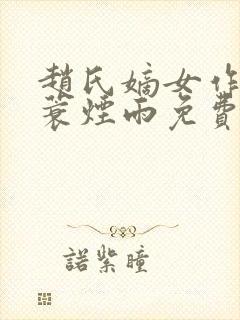 趙氏嫡女作
蓑煙雨免費
諾紫瞳